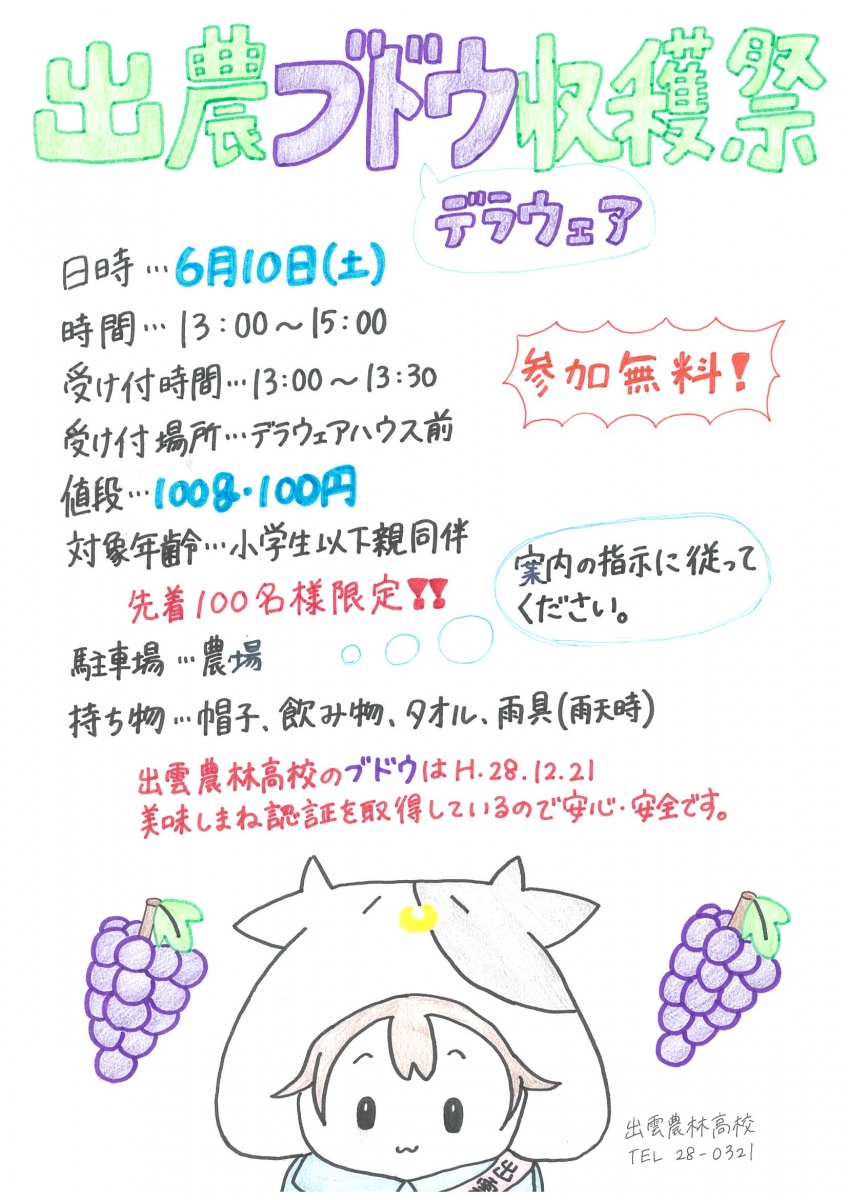 出農ブドウ収穫祭
デラウェア
日時…6月10日(土)
時間…13:00～15:00
受け付時間…13:00～13:30
受け付場所…デラウェアハウス前
参加無料!
値段…100g・100円
対象年齢…小学生以下親同伴
先着100名様限定!!
案内の指示に従って
ください。
駐車場…農場
持ち物…帽子、飲み物、タオル、雨具(雨天時)
出雲農林高校のブドウはH.28.12.21
美味しまね認証を取得しているので安心・安全です。
出雲農林高校
TEL 28-0321